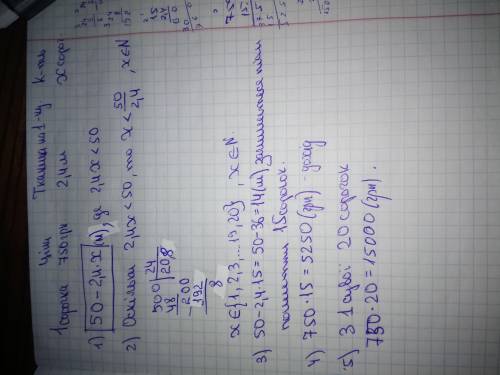 Ціна Тканина на 1-цу К-ть
1 сорочка 750 грн 2,4 м x сороч
1) 50 - 2,4·x (м), де 2,4x < 50
2) Оскільки 2,4x < 50, то x < 50/2,4, x∈N
500 | 24
48 | 20,8
- 200
192
8
x∈{1,2,3,...19,20}, x∈N.
3) 50-2,4·15 = 50-36=14(м) залишиться після
пошиття 15 сорочок.
4) 750·15 = 5250 (грн) - дохід
5) З 1 сувої 20 сорочок
750·20 = 15000 (грн).